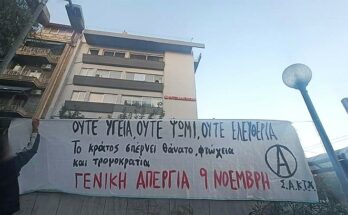 ΟΥΤΕ ΥΓΕΙΑ, ΟΥΤΕ ΨΩΜΙ, ΟΥΤΕ ΕΛΕΥΘΕΡΙΑ
Το κράτος σπέρνει θάνατο, φτώχεια
και τρομοκρατία
ΓΕΝΙΚΗ ΑΠΕΡΓΙΑ 9 ΝΟΕΜΒΡΗ
Α